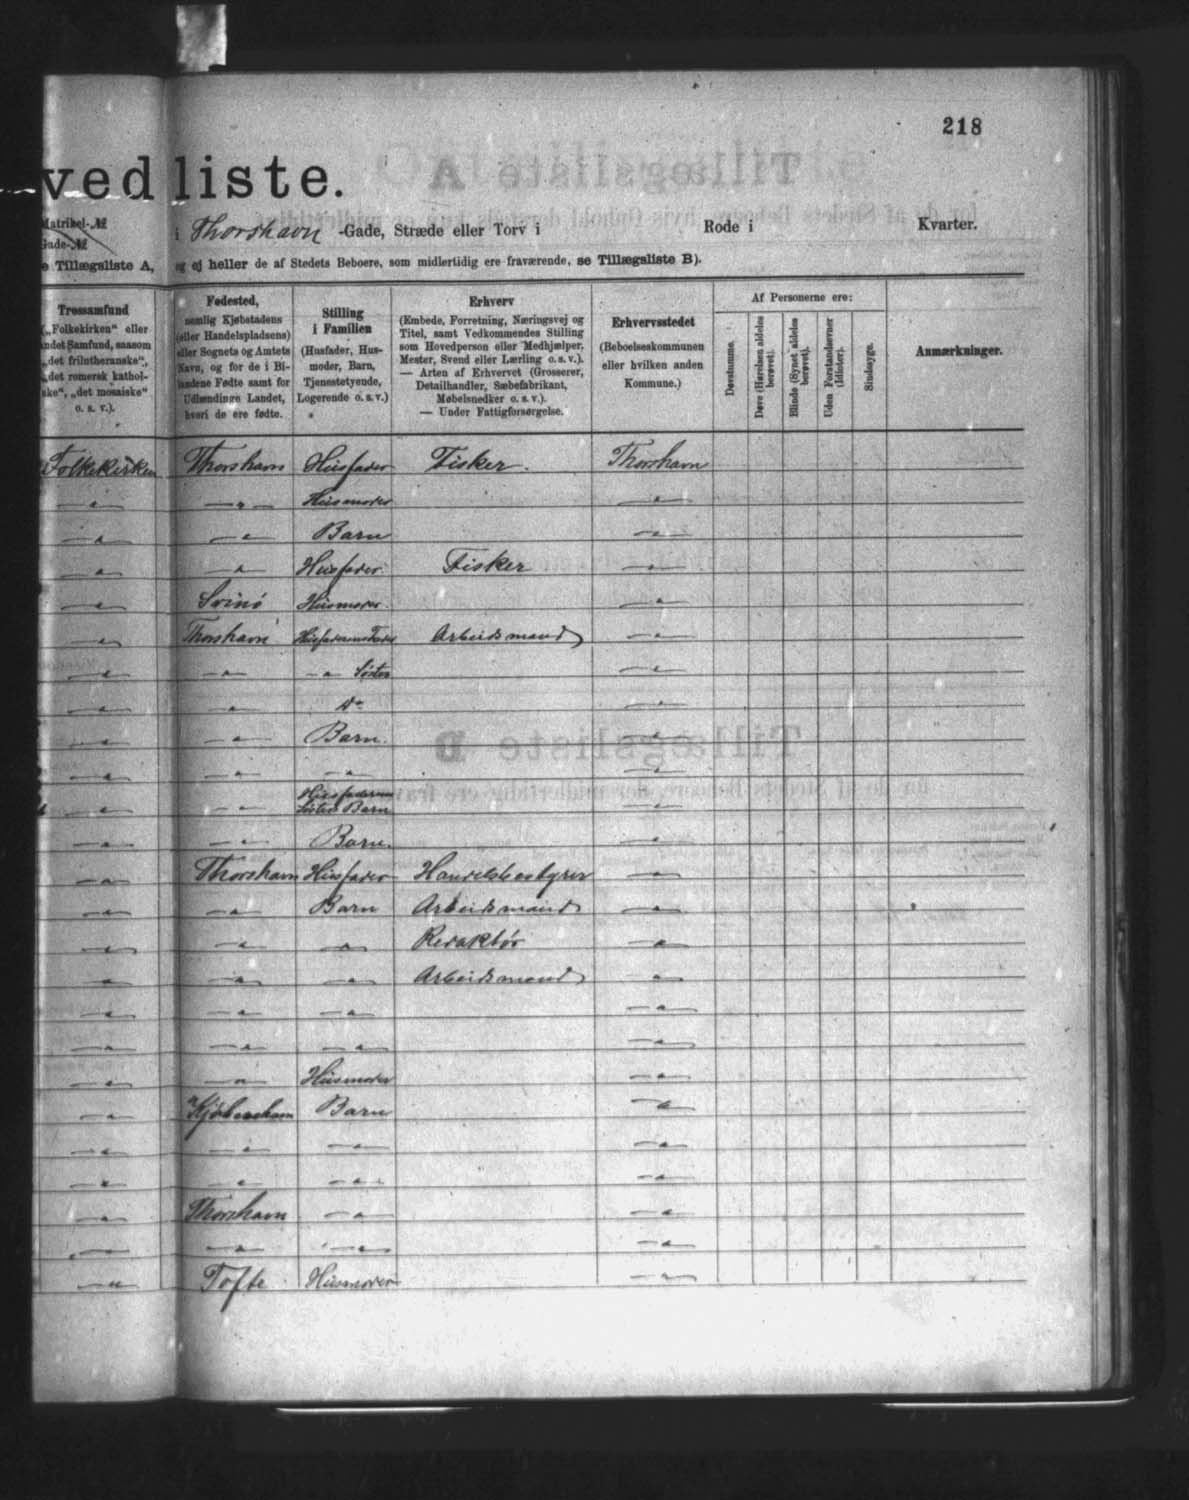 218
vedliste.
Matrikel-№
Gade-№
i Thorshavn -Gade, Stræde eller Torv i Rode i Kvarter.
e Tillægsliste A, og ej heller de af Stedets Beboere, som midlertidig ere fraværende, se Tillægsliste B).
Trossamfund
(„Folkekirken“ eller
andet Samfund, saasom
„det frilutheranske“,
„det romersk kathol-
ske“, „det mosaiske“
o. s. v.).
Fødested,
nemlig Kjøbstadens
(eller Handelspladsens)
eller Sognets og Amtets
Navn, og for de i Bi-
landene Fødte samt for
Udlændinge Landet,
hvori de ere fødte.
Stilling
i Familien
(Husfader, Hus-
moder, Barn,
Tjenestetyende,
Logerende o. s. v.)
Erhverv
(Embede, Forretning, Næringsvej og
Titel, samt Vedkommendes Stilling
som Hovedperson eller Medhjælper,
Mester, Svend eller Lærling o. s. v.).
— Arten af Erhvervet (Grosserer,
Detailhandler, Sæbefabrikant,
Møbelsnedker o. s. v.).
— Under Fattigforsørgelse.
Erhvervsstedet
(Beboelseskommunen
eller hvilken anden
Kommune.)
Af Personerne ere:
Døvstumme.
Døve (Hørelsen aldeles
berøvet).
Blinde (Synet aldeles
berøvet).
Uden Forstandsevner
(Idioter).
Sindssyge.
Anmærkninger.
Folkekirken Thorshavn Husfader Fisker. Thorshavn
—"— —"— Husmoder —"—
—"— —"— Barn —"—
—"— —"— Husfader Fisker —"—
—"— Svinø Husmoder —"—
—"— Thorshavn Husfaderens Fader Arbeidsmand —"—
—"— —"— —"— Søster —"—
—"— —"— Do —"—
—"— —"— Barn. —"—
—"— —"— —"— —"—
—"— —"— Husfaderens Søsters Barn —"—
—"— —"— Barn. —"—
—"— Thorshavn Husfader Handelsbestyrer —"—
—"— —"— Barn Arbeidsmand —"—
—"— —"— —"— Redaktør —"—
—"— —"— —"— Arbeidsmand —"—
—"— —"— —"— —"—
—"— —"— —"— —"—
—"— —"— Husmoder —"—
—"— Kjøbenhavn Barn —"—
—"— —"— —"— —"—
—"— —"— —"— —"—
—"— Thorshavn —"— —"—
—"— —"— —"— —"—
—"— Tofte Husmoder —"—